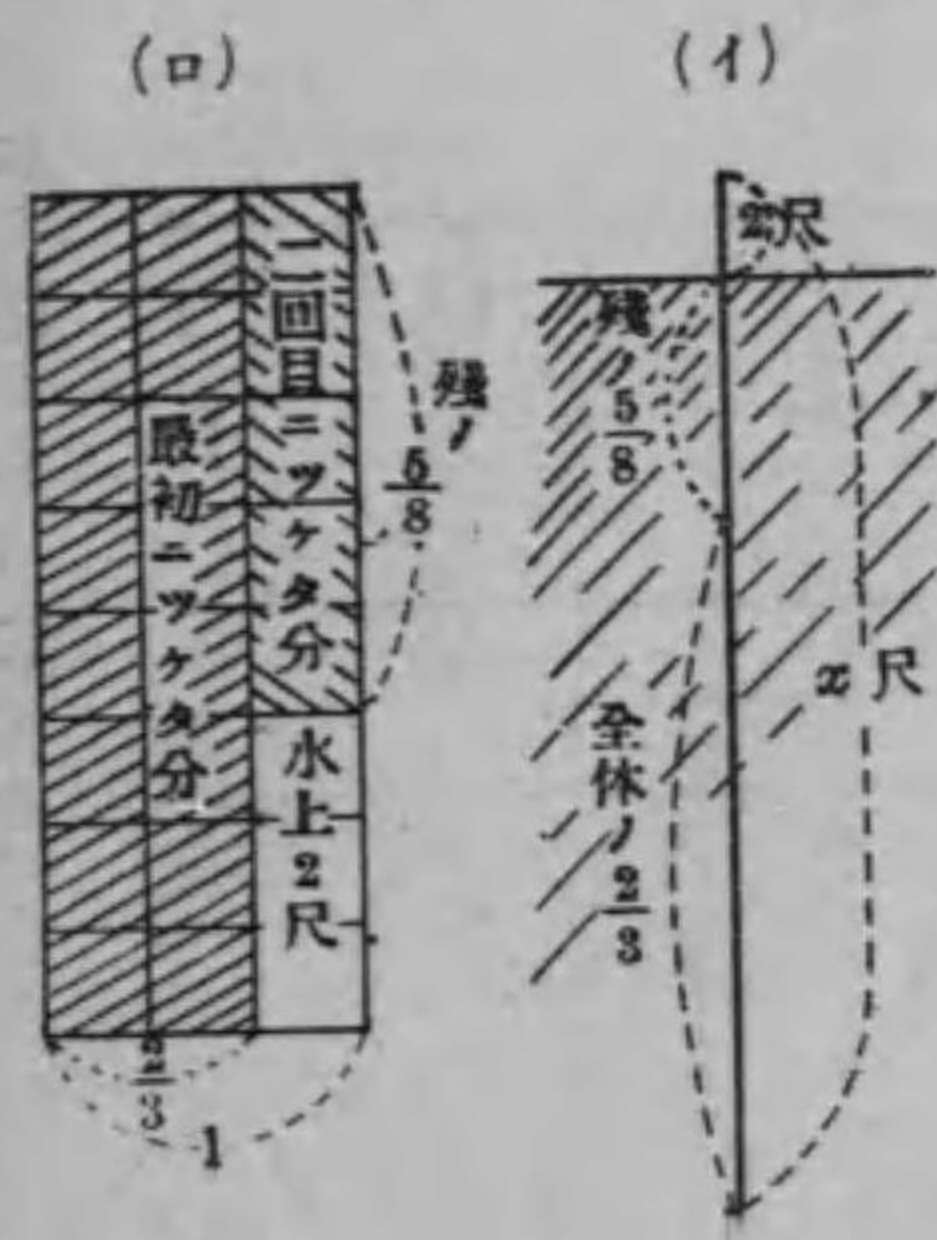 (イ)
2尺
残ノ5/8
x尺
全体ノ2/3
(ロ)
二回目ニツケタ分
残ノ5/8
最初ニツケタ分
水上2尺
2/3
1